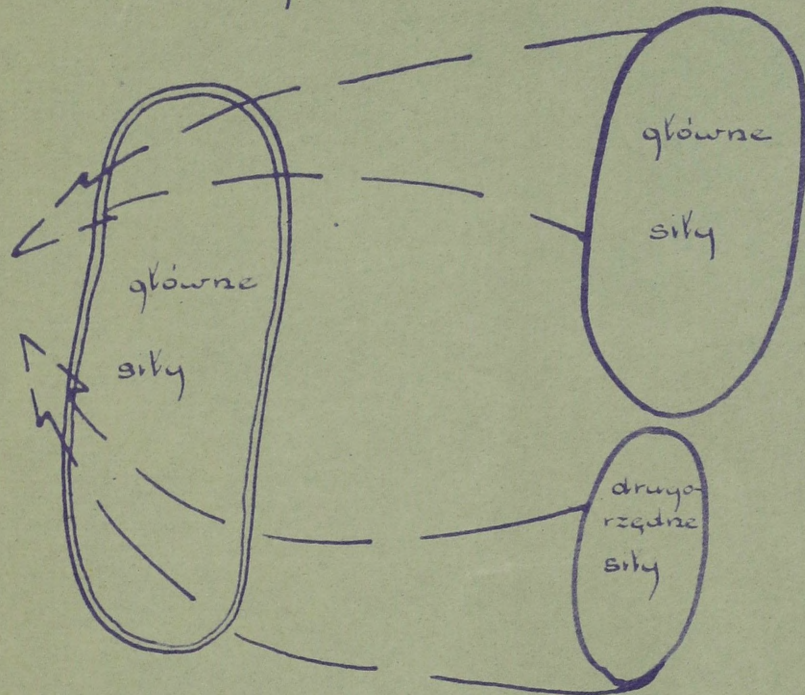 główne
siły
główne
siły
drugo-
rzędne
siły